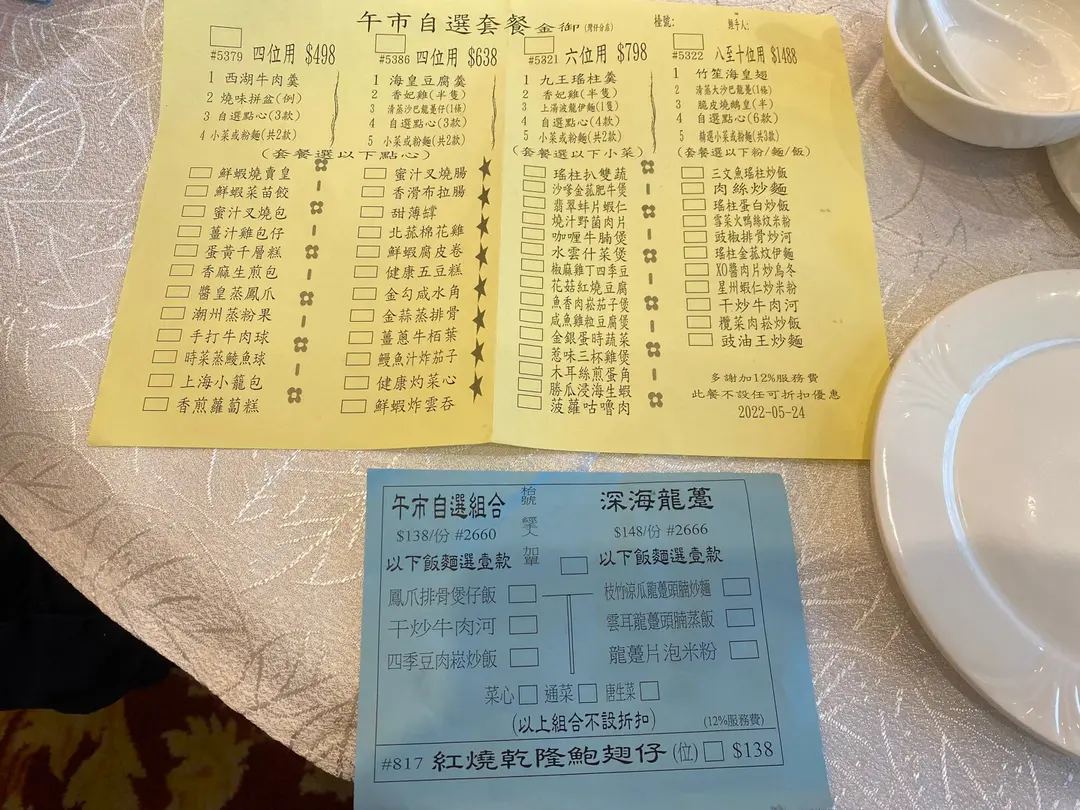 午市自選套餐金御(灣仔分店)
檯號: 經手人:
#5379 四位用 $498
1 西湖牛肉羹
2 燒味拼盆(例)
3 自選點心(3款)
4 小菜或粉麵(共2款)
#5386 四位用 $638
1 海皇豆腐羹
2 香妃雞(半隻)
3 清蒸沙巴龍躉仔(1條)
4 自選點心(3款)
5 小菜或粉麵(共2款)
(套餐選以下點心)
鮮蝦燒賣皇
鮮蝦菜苗餃
蜜汁叉燒包
薑汁雞包仔
蛋黃千層糕
香麻生煎包
醬皇蒸鳳爪
潮州蒸粉果
手打牛肉球
時菜蒸鯪魚球
上海小籠包
香煎蘿蔔糕
蜜汁叉燒腸
香滑布拉腸
甜薄罉
北菰棉花雞
鮮蝦腐皮卷
健康五豆糕
金勾咸水角
金蒜蒸排骨
薑蔥牛栢葉
鰻魚汁炸茄子
健康灼菜心
鮮蝦炸雲吞
#5321 六位用 $798
1 九王瑤柱羹
2 香妃雞(半隻)
3 上湯波龍伊麵(1隻)
4 自選點心(4款)
5 小菜或粉麵(共2款)
(套餐選以下小菜)
瑤柱扒雙蔬
沙嗲金菰肥牛煲
翡翠蚌片蝦仁
燒汁野菌肉片
咖喱牛腩煲
水雲什菜煲
椒麻雞丁四季豆
花菇紅燒豆腐
魚香肉崧茄子煲
咸魚雞粒豆腐煲
金銀蛋時蔬菜
惹味三杯雞煲
木耳絲煎蛋角
勝瓜浸海生蝦
菠蘿咕嚕肉
#5322 八至十位用 $1488
1 竹笙海皇翅
2 清蒸大沙巴龍躉(1條)
3 脆皮燒鵝皇(半)
4 自選點心(6款)
5 精選小菜或粉麵(共3款)
(套餐選以下粉/麵/飯)
三文魚瑤柱炒飯
肉絲炒麵
瑤柱蛋白炒飯
雪菜火鴨絲炆米粉
豉椒排骨炒河
瑤柱金菰炆伊麵
XO醬肉片炒烏冬
星州蝦仁炒米粉
干炒牛肉河
欖菜肉崧炒飯
豉油王炒麵
多謝加12%服務費
此餐不設任可折扣優惠
2022-05-24
午市自選組合
$138/份 #2660
以下飯麵選壹款
鳳爪排骨煲仔飯
干炒牛肉河
四季豆肉崧炒飯
枱號 經手人 加單
深海龍躉
$148/份 #2666
以下飯麵選壹款
枝竹涼瓜龍躉頭腩炒麵
雲耳龍躉頭腩蒸飯
龍躉片泡米粉
菜心 通菜 唐生菜
(以上組合不設折扣) (12%服務費)
#817 紅燒乾隆鮑翅仔(位) $138